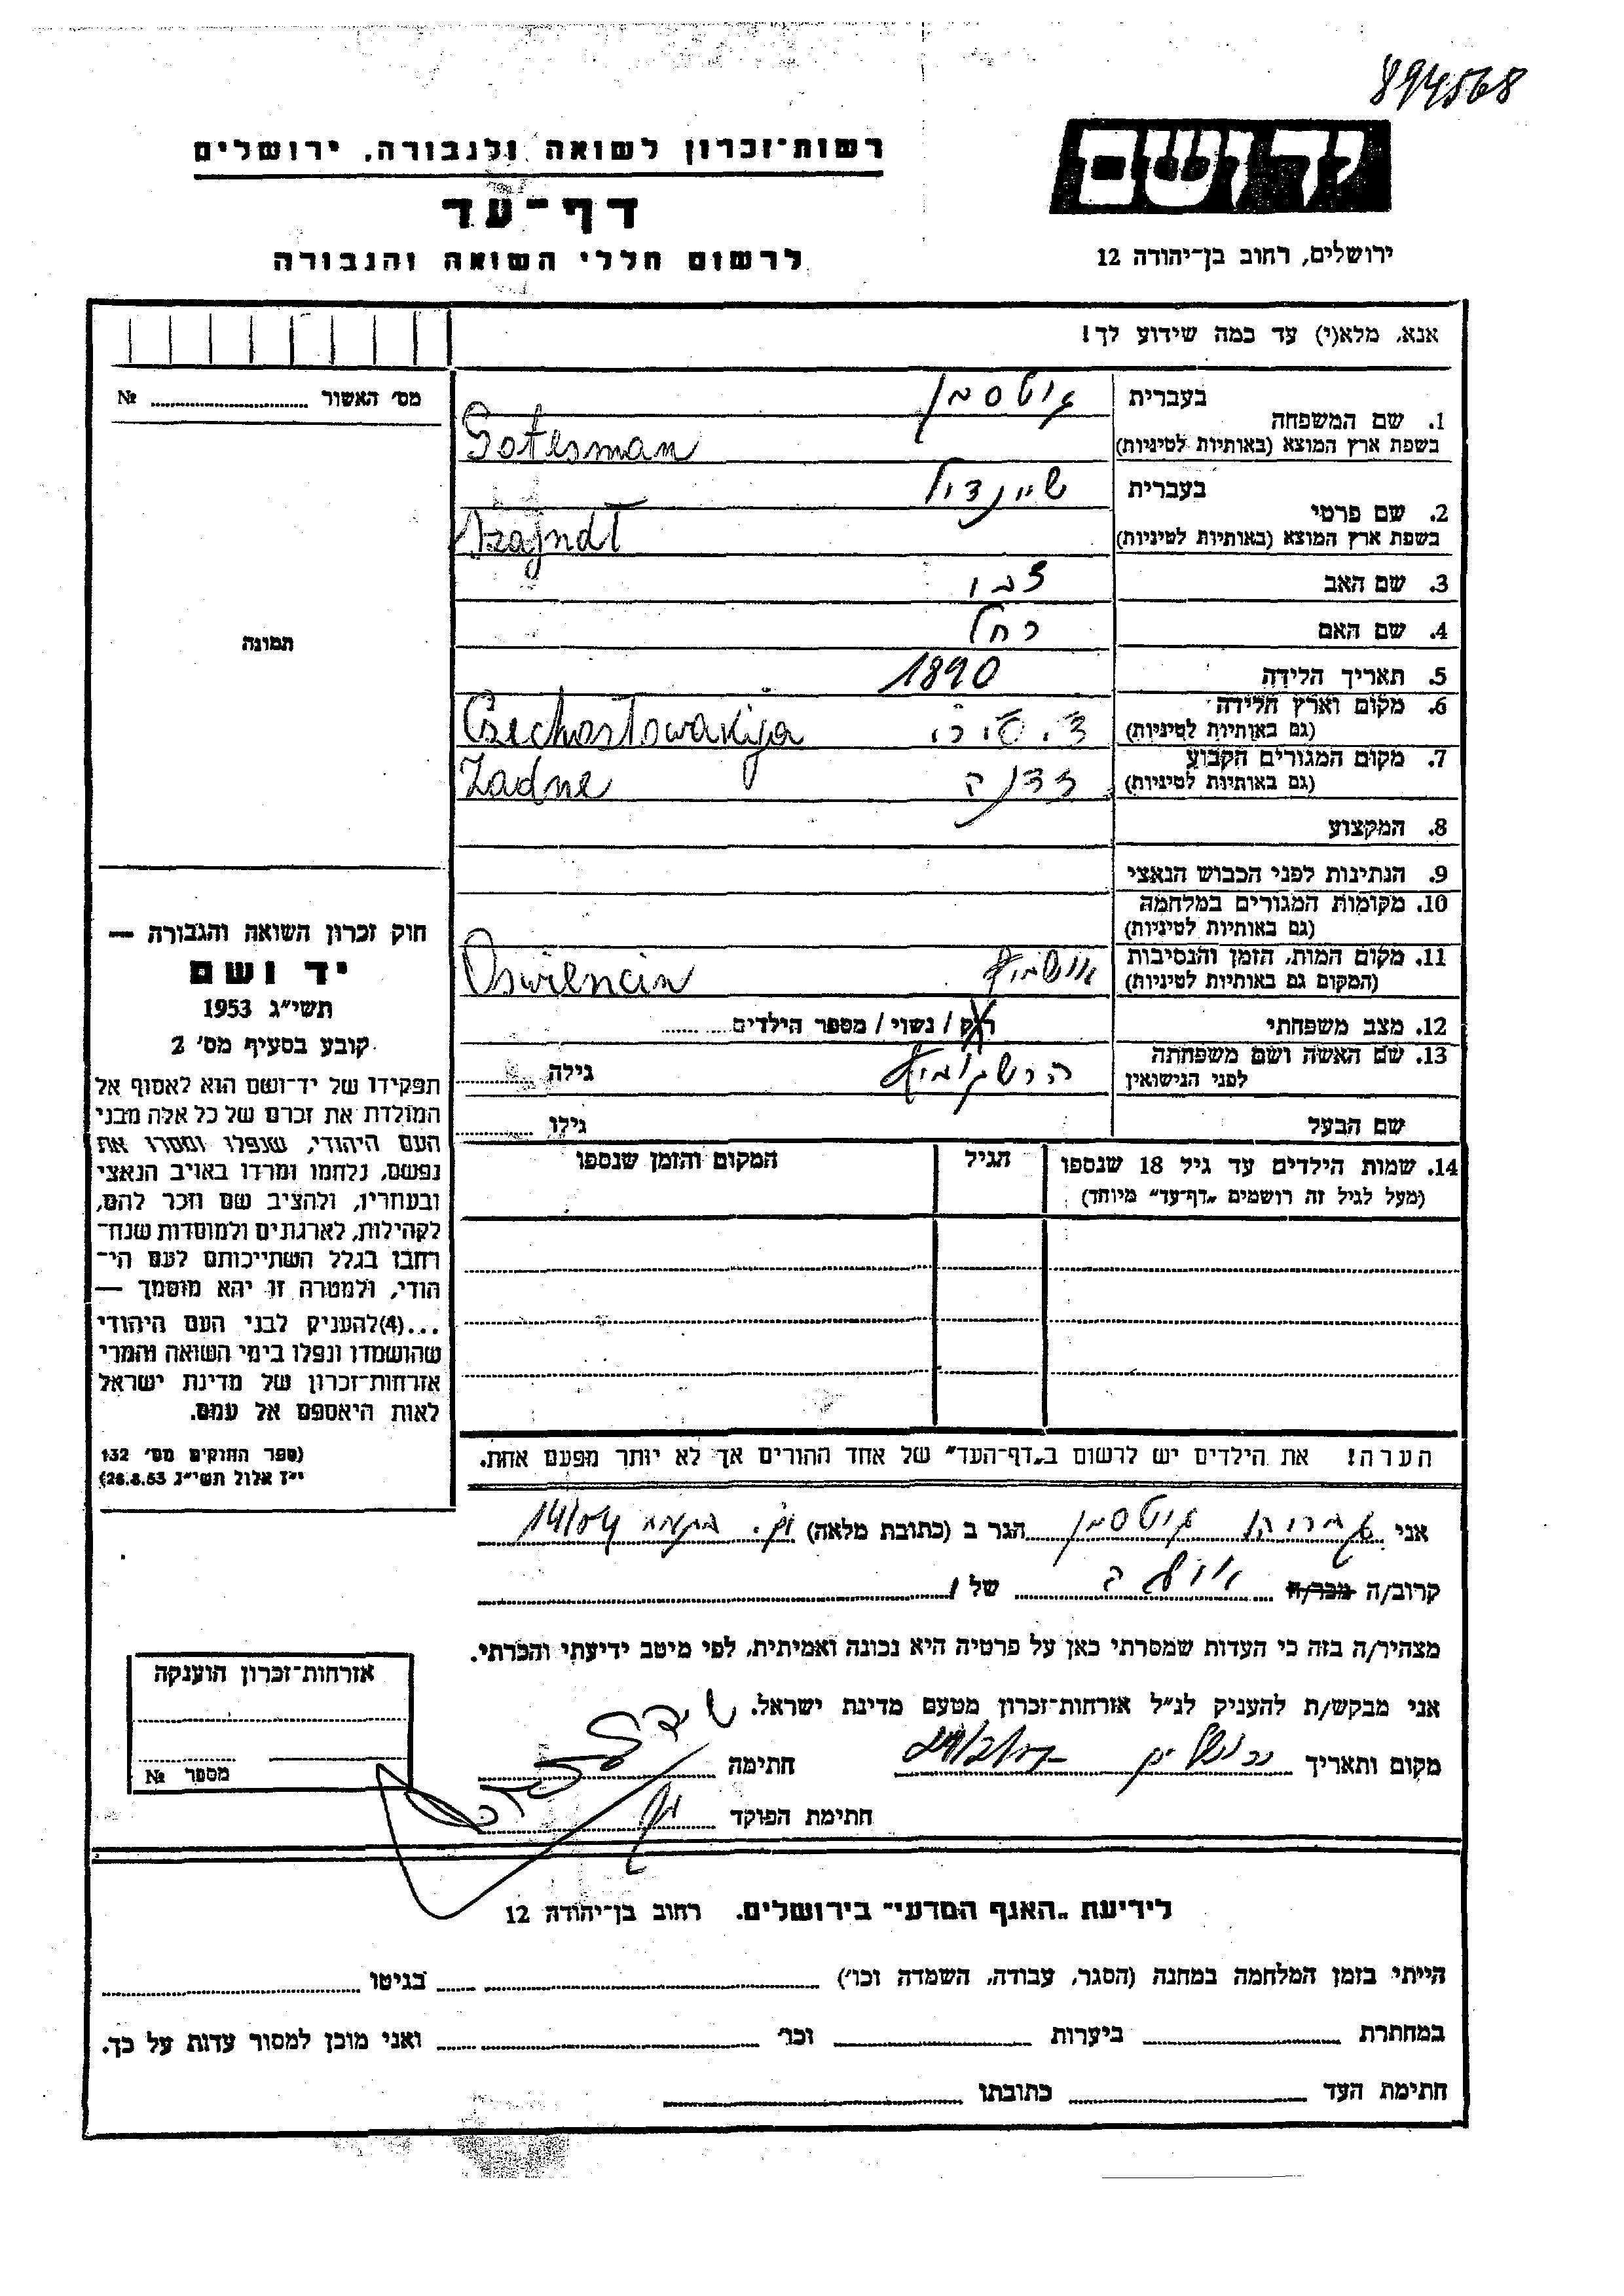 894568
יד ושם
ירושלים, רחוב בן־יהודה 12
רשות־זכרון לשואה ולגבורה, ירושלים
דף־עד
לרשום חללי השואה והגבורה
אנא, מלא(י) עד כמה שידוע לך!
מס׳ האשור № 
תמונה
1. שם המשפחה
בעברית גוטסמן
בשפת ארץ המוצא (באותיות לטיניות) Gotesman
2. שם פרטי
בעברית שיינדיל
בשפת ארץ המוצא (באותיות לטיניות) Szajndl
3. שם האב
4. שם האם רחל
5. תאריך הלידה 1890
6. מקום וארץ הלידה
(גם באותיות לטיניות) Czechosłowakija
7. מקום המגורים הקבוע
(גם באותיות לטיניות) זדניה Zadne
8. המקצוע
9. הנתינות לפני הכבוש הנאצי
10. מקומות המגורים במלחמה
(גם באותיות לטיניות)
11. מקום המות, הזמן והנסיבות
(המקום גם באותיות לטיניות) אושביץ Oswiencin
12. מצב משפחתי רוק / נשוי / מספר הילדים
13. שם האשה ושם משפחתה
לפני הנישואין הרשקוביץ גילה
שם הבעל גילו
14. שמות הילדים עד גיל 18 שנספו הגיל המקום והזמן שנספו
(מעל לגיל זה רושמים „דף־עד״ מיוחד)
הערה! את הילדים יש לרשום ב„דף־העד״ של אחד ההורים אך לא יותר מפעם אחת.
חוק זכרון השואה והגבורה —
יד ושם
תשי״ג 1953
קובע בסעיף מס׳ 2
תפקידו של יד־ושם הוא לאסוף אל
המולדת את זכרם של כל אלה מבני
העם היהודי, שנפלו ומסרו את
נפשם, נלחמו ומרדו באויב הנאצי
ובעוזריו, ולהציב שם וזכר להם,
לקהילות, לארגונים ולמוסדות שנח־
רבו בגלל השתייכותם לעם הי־
הודי, ולמטרה זו יהא מוסמך —
...(4)להעניק לבני העם היהודי
שהושמדו ונפלו בימי השואה והמרי
אזרחות־זכרון של מדינת ישראל
לאות היאספם אל עמם.
(ספר החוקים מס׳ 132
י״ז אלול תשי״ג 28.8.53)
אני גוטסמן הגר ב (כתובת מלאה) 14/04
קרוב/ה מכר/ה של /
מצהיר/ה בזה כי העדות שמסרתי כאן על פרטיה היא נכונה ואמיתית, לפי מיטב ידיעתי והכרתי.
אני מבקש/ת להעניק לנ״ל אזרחות־זכרון מטעם מדינת ישראל.
מקום ותאריך ירושלים חתימה
חתימת הפוקד
אזרחות־זכרון הוענקה
מספר №
לידיעת „האגף המדעי״ בירושלים, רחוב בן־יהודה 12
הייתי בזמן המלחמה במחנה (הסגר, עבודה, השמדה וכו׳) בגיטו
במחתרת ביערות וכו׳ ואני מוכן למסור עדות על כך.
חתימת העד כתובתו